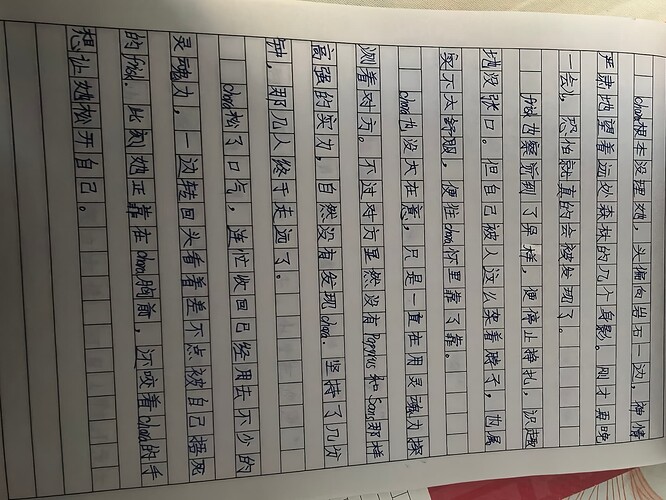 chara根本没理她，头偏向岩石一边，神情
严肃地望着远处森林的几个身影。刚才再晚
一会儿，恐怕就真的会被发现了。
frisk也察觉到了异样，便停止挣扎，识趣
地没张口。但自己被人这么架着脖子，也属
实不大舒服，便往chara怀里靠了靠。
chara也没太在意，只是一直在用灵魂力探
测着对方。不过对方显然没有Papyrus和Sans那样
高强的实力，自然没有发现chara。坚持了几分
钟，那几人终于走远了。
chara松了口气，连忙收回已经用去不少的
灵魂力，一边转回头看着差不点被自己捂死
的frisk。此刻她正靠在chara胸前，还咬着chara的手
想让她松开自己。